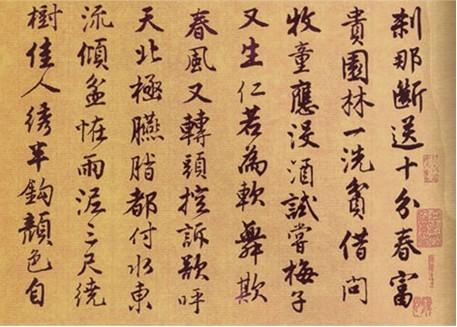 刹那斷送十分春富
貴園林一洗貧借問
牧童應沒酒試嘗梅子
又生仁若為軟舞欺
春風又轉頭控訴欲呼
天北極臙脂都付水東
流傾盆恠雨泥三尺繞
樹佳人綉半鈎顏色自